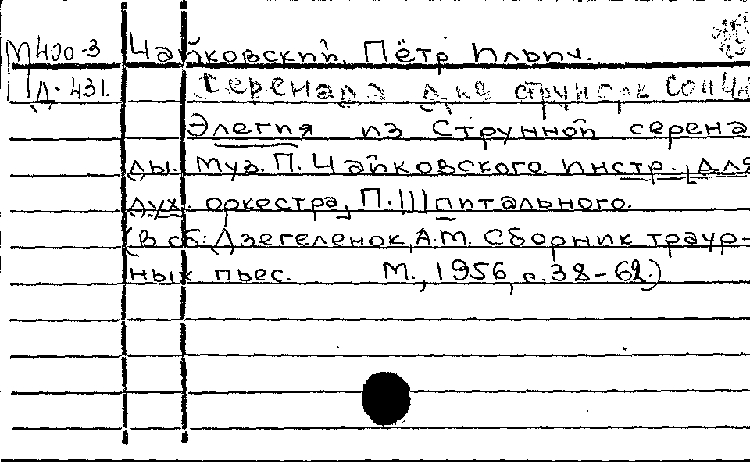 М420-3 Чайковский, Пётр Ильич.
Д-431. Серенада для струн. орк. соч. 48
Элегия из Струнной серена
ды. Муз. П. Чайковского. Инстр. для
дух. оркестра, П. Шпитального.
(В сб: Дзегеленок, А.М. Сборник траур-
ных пьес. М., 1956, с. 38-62.)